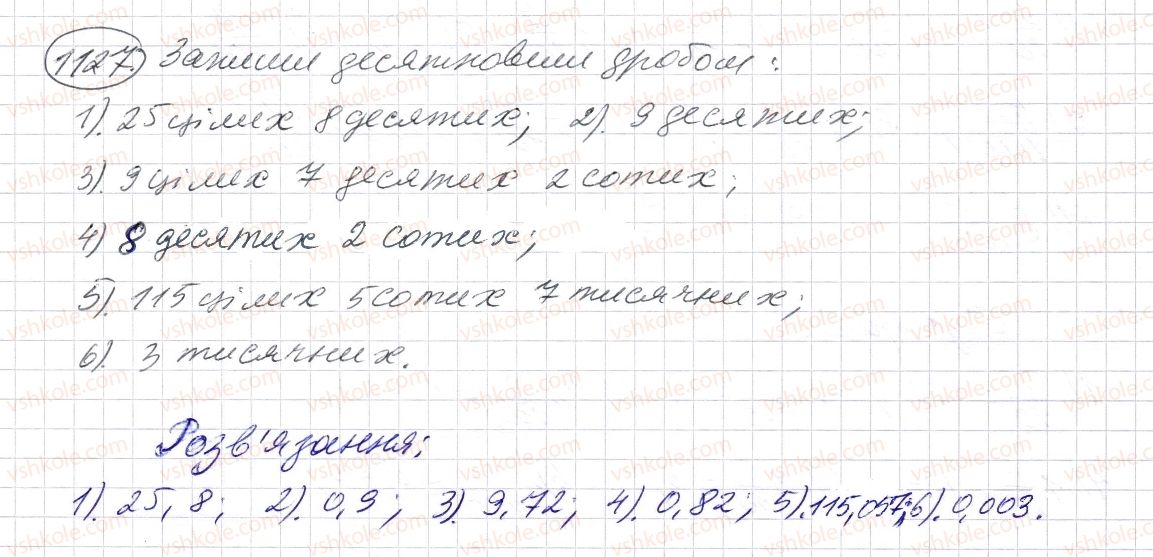 1127. Запиши десятковим дробом:
1). 25 цілих 8 десятих; 2). 9 десятих;
3). 9 цілих 7 десятих 2 сотих;
4) 8 десятих 2 сотих;
5). 115 цілих 5 сотих 7 тисячних;
6). 3 тисячних.
Розв'язання:
1). 25,8; 2). 0,9; 3). 9,72; 4). 0,82; 5). 115,057; 6). 0,003.